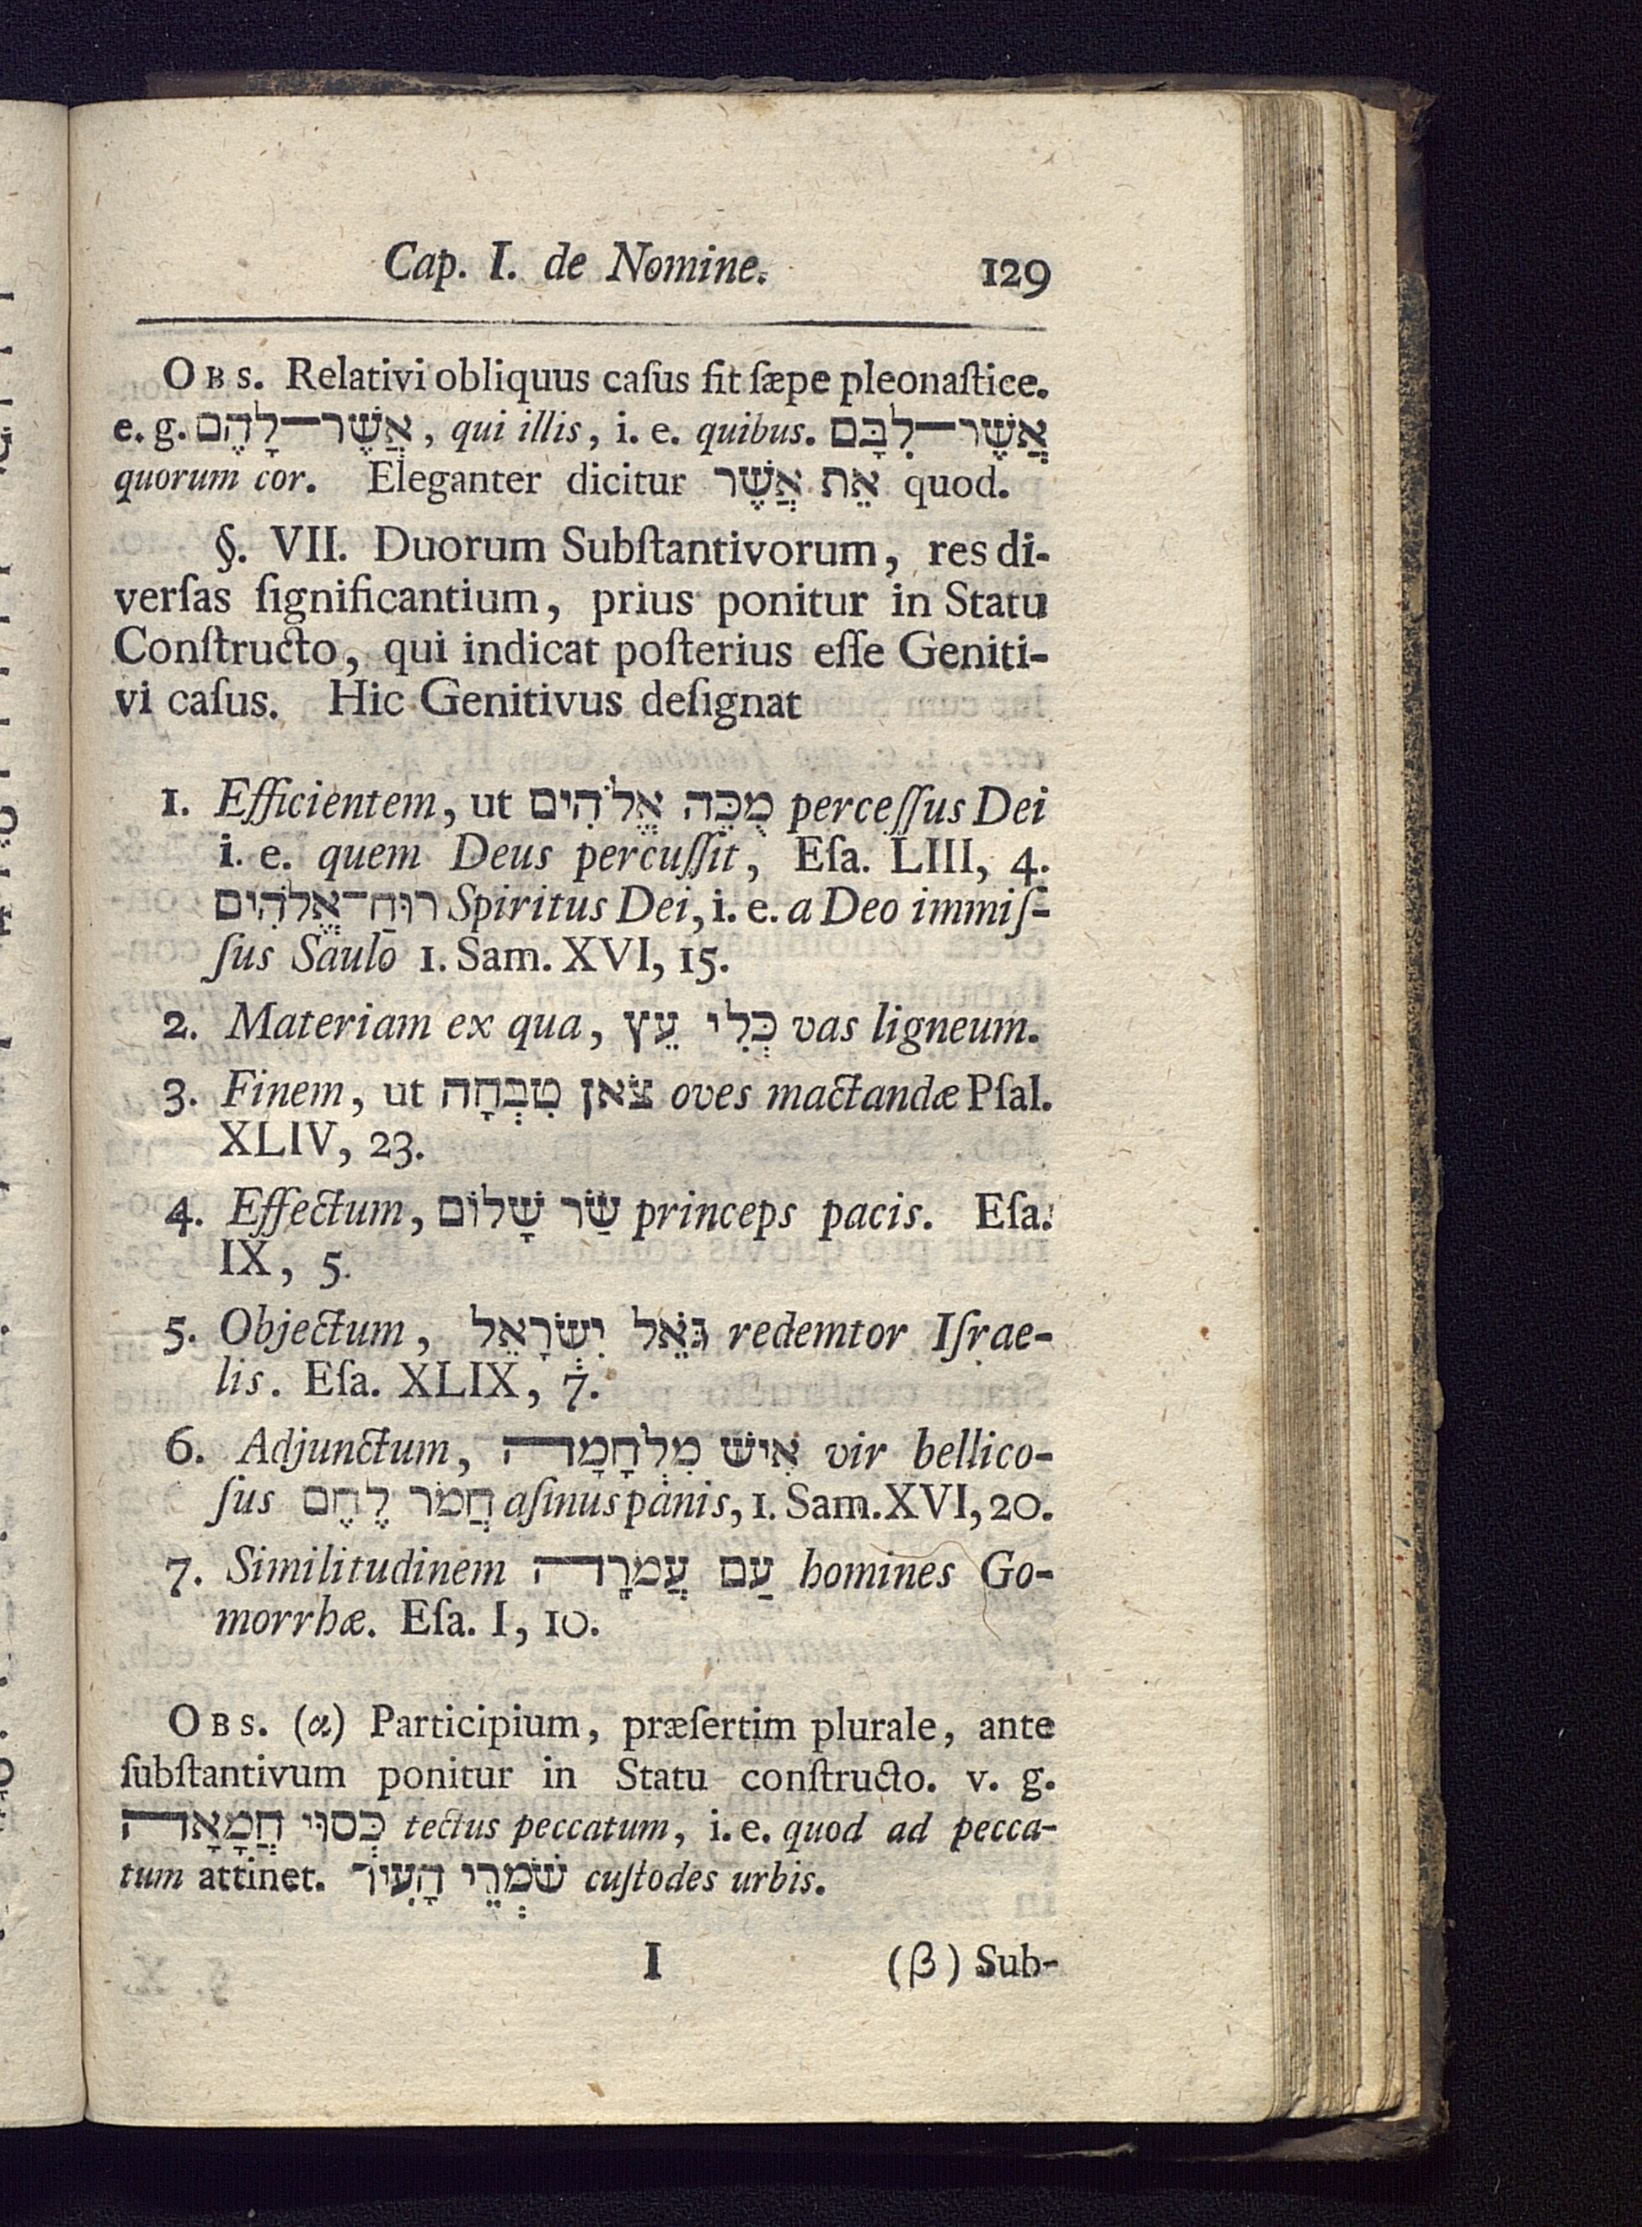 Cap. I. de Nomine. 129
OBS. Relativi obliquus caſus fit ſæpe pleonaſtice.
e. g. אֲשֶׁר־לָהֶם, qui illis, i. e. quibus. אֲשֶׁר־לִבָּם
quorum cor. Eleganter dicitur אֵת אֲשֶׁר quod.
§. VII. Duorum Subſtantivorum, res di-
verſas ſignificantium, prius ponitur in Statu
Conſtructo, qui indicat poſterius eſſe Geniti-
vi caſus. Hic Genitivus deſignat
1. Efficientem, ut מֻכֵּה אֱלֹהִים perceſſus Dei
i. e. quem Deus percuſſit, Eſa. LIII, 4.
רוּחַ־אֱלֹהִים Spiritus Dei, i. e. a Deo immiſ-
ſus Saulo 1. Sam. XVI, 15.
2. Materiam ex qua, כְּלִי עֵץ vas ligneum.
3. Finem, ut צֹאן טִבְחָה oves mactandæ Pſal.
XLIV, 23.
4. Effectum, שַׂר שָׁלוֹם princeps pacis. Eſa.
IX, 5.
5. Objectum, גֹּאֵל יִשְׂרָאֵל redemtor Iſrae-
lis. Eſa. XLIX, 7.
6. Adjunctum, אִישׁ מִלְחָמָה vir bellico-
ſus חֲמֹר לֶחֶם aſinus panis, 1. Sam. XVI, 20.
7. Similitudinem עַם עֲמֹרָה homines Go-
morrhæ. Eſa. I, 10.
OBS. (α) Participium, præſertim plurale, ante
ſubſtantivum ponitur in Statu conſtructo. v. g.
כְּסוּי חֲמָאָה tectus peccatum, i. e. quod ad pecca-
tum attinet. שֹׁמְרֵי הָעִיר cuſtodes urbis.
I (β) Sub-